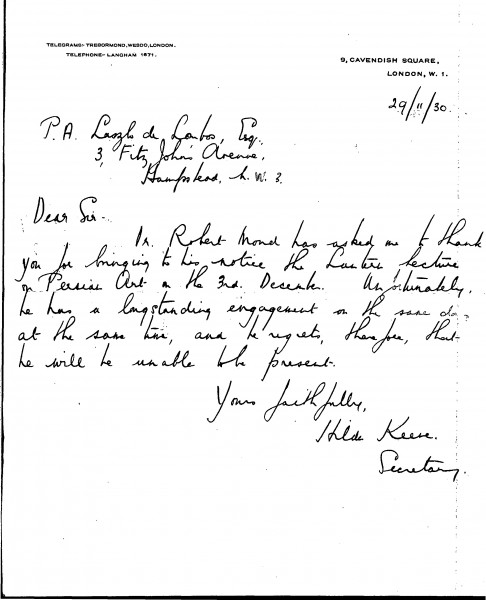 TELEGRAMS- TRESORMOND, WESDO, LONDON.
TELEPHONE- LANGHAM 1871.
9, CAVENDISH SQUARE,
LONDON, W. 1.
29/11/30.
P. A. Laszlo de Lombos, Esq.,
3, Fitz John's Avenue,
Hampstead, N. W. 3.
Dear Sir-
Dr. Robert Mond has asked me to thank
you for bringing to his notice the Lantern lecture
on Persian Art on the 3rd. December. Unfortunately,
he has a longstanding engagement on the same
at the same time, and he regrets, therefore, that
he will be unable to be present.
Yours faithfully,
Hilda
Secretary.